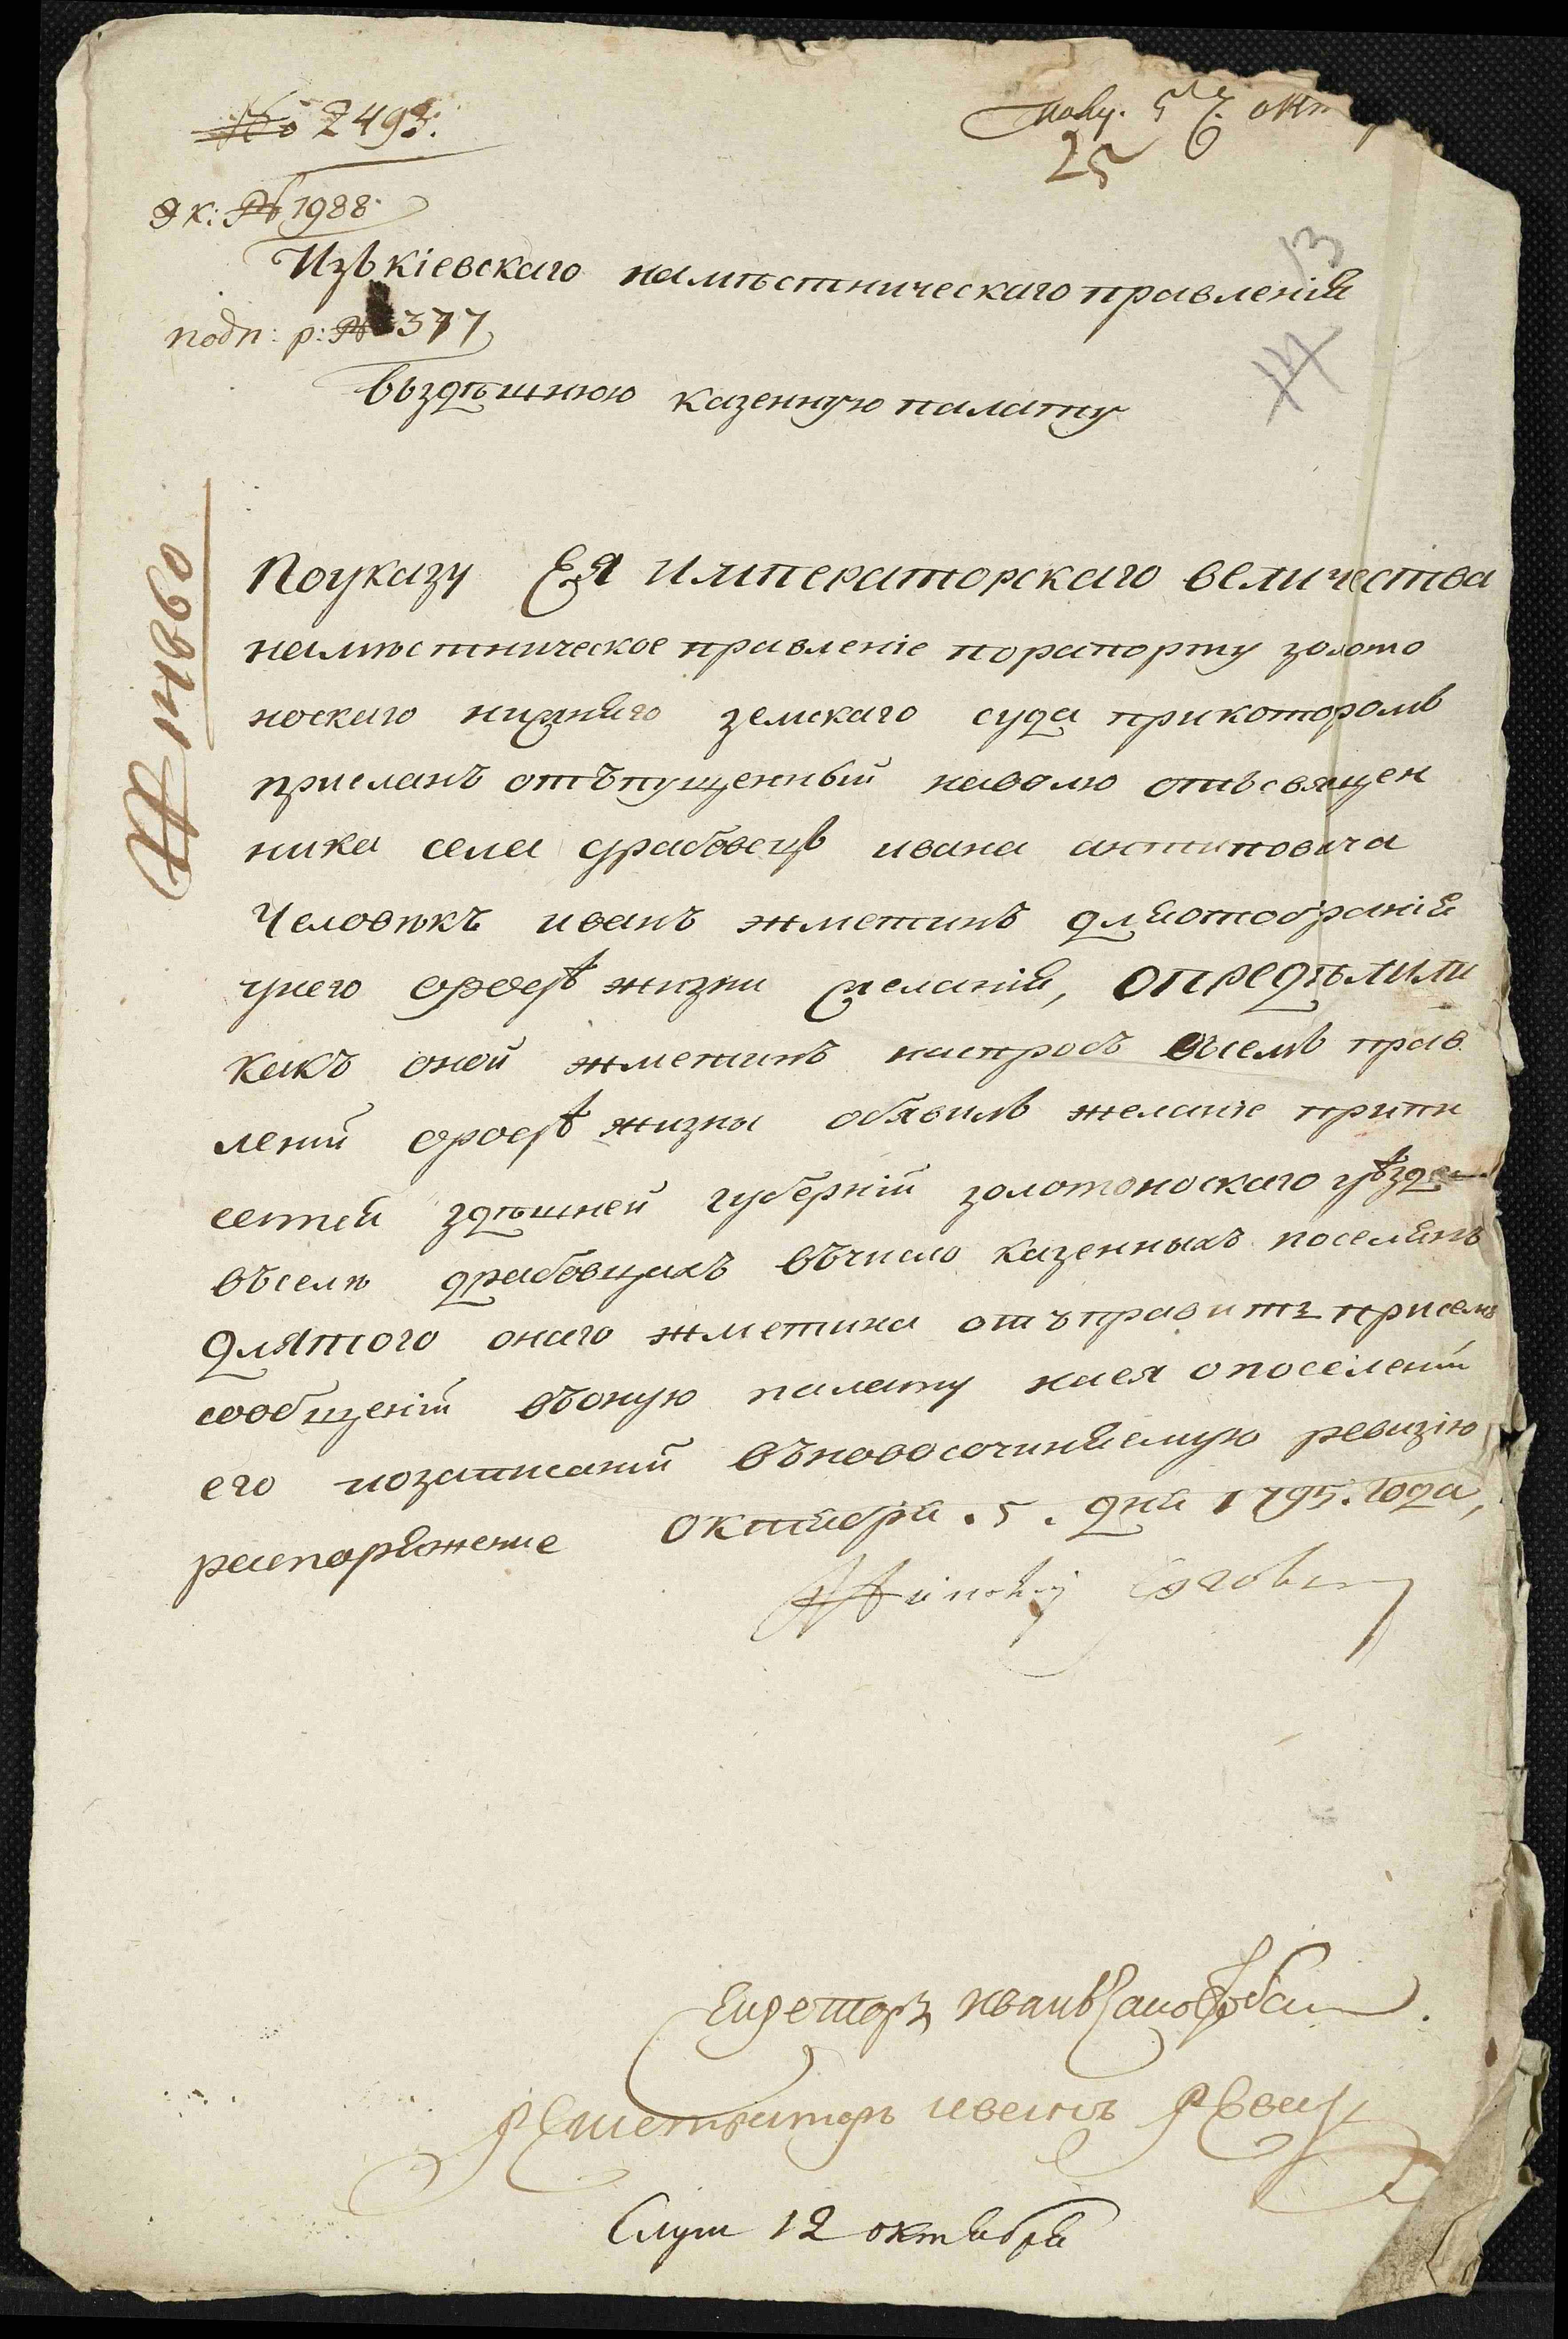 № 2493.
Полу. 5 г. окт
25
эк: № 1988
13
Изъ кіевскаго намѣстническаго правленія
подп: р: № 377
14
Въздѣшнюю казенную палату
№ 14660
Поуказу Ея императорскаго величества
намѣстническое правленіе порапорту золото
носкаго нижняго земскаго суда прикоторомъ
присланъ отъпущенный наволю отъсвящен
ника села драбовецъ ивана антиповича
Человѣкъ иванъ жметинъ дляотобранія
унего ородѣ жизни желанія, опредѣлили
какъ оной жметинъ наспросъ въсемъ прав
леніи ородѣ жизны обявилъ желаніе припи
сатся здѣшней губерніи золотоноскаго уѣзда
въселѣ драбовцахъ въчисло казенныхъ поселянъ
Длятого онаго жметина отъправить присемъ
сообщеніи въоную палату коея опоселеніи
его изаписаніи въновосочиняемую ревизію
распоряжение Октября .5. дня 1795. года,
Секретаръ Иванъ
Регистраторъ иванъ
Слуш 12 октября